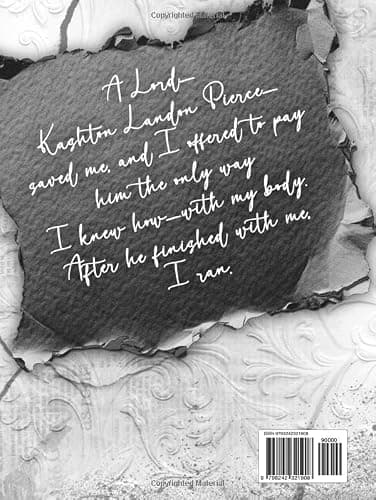 Copyrighted Material
A Lord—
Kashton Landon Pierce—
saved me, and I offered to pay
him the only way
I knew how—with my body.
After he finished with me,
I ran.
ISBN 9798242321908
90000
9 798242 321908
Copyrighted Material